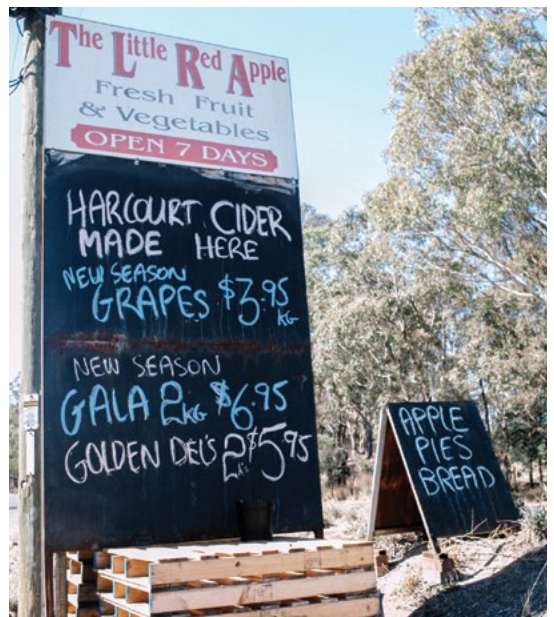 The Little Red Apple
Fresh Fruit
& Vegetables
OPEN 7 DAYS
HARCOURT CIDER
MADE HERE
NEW SEASON
GRAPES $3.95 KG
NEW SEASON
GALA 2KG $6.95
GOLDEN DEL'S 2KG $5.95
APPLE
PIES
BREAD